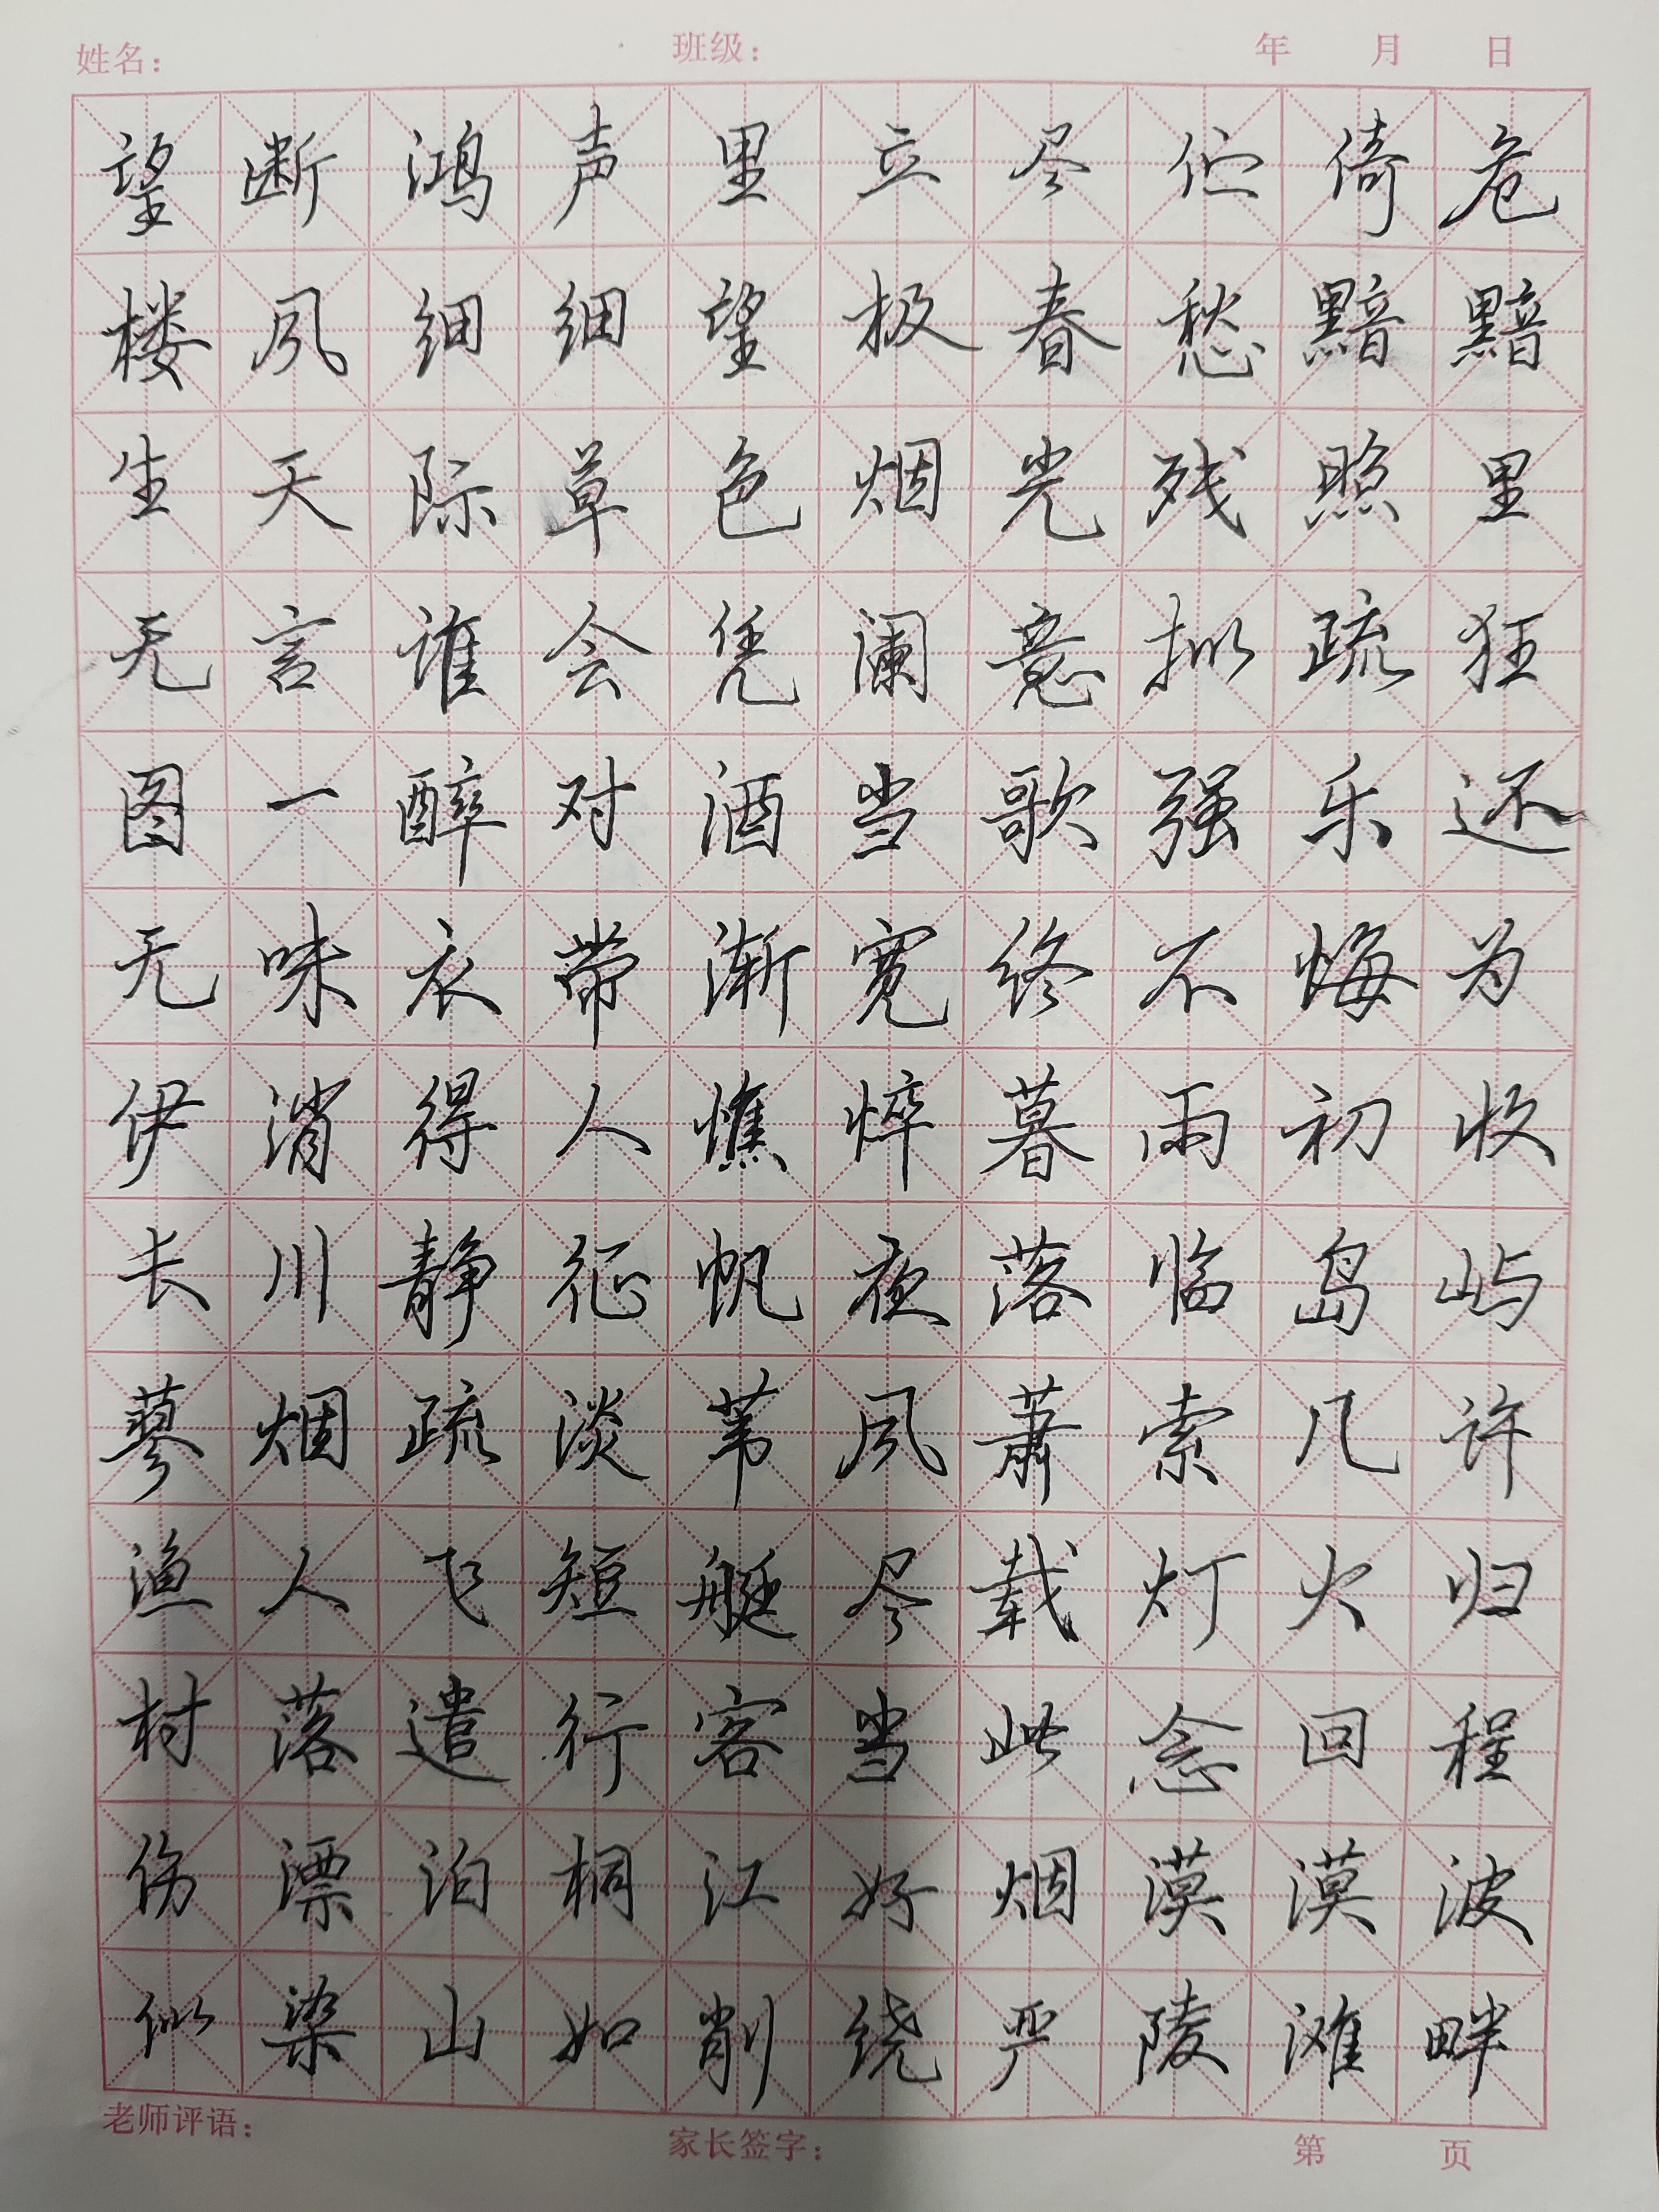 姓名： 班级： 年 月 日
望断鸿声里立尽伫倚危
楼风细细望极春愁黯黯
生天际草色烟光残照里
无言谁会凭阑意拟疏狂
图一醉对酒当歌强乐还
无味衣带渐宽终不悔为
伊消得人憔悴暮雨初收
长川静征帆夜落临岛屿
蓼烟疏淡苇风萧索几许
渔人飞短艇尽载灯火归
村落遣行客当此念回程
伤漂泊桐江好烟漠漠波
似染山如削绕严陵滩畔
老师评语： 家长签字： 第 页